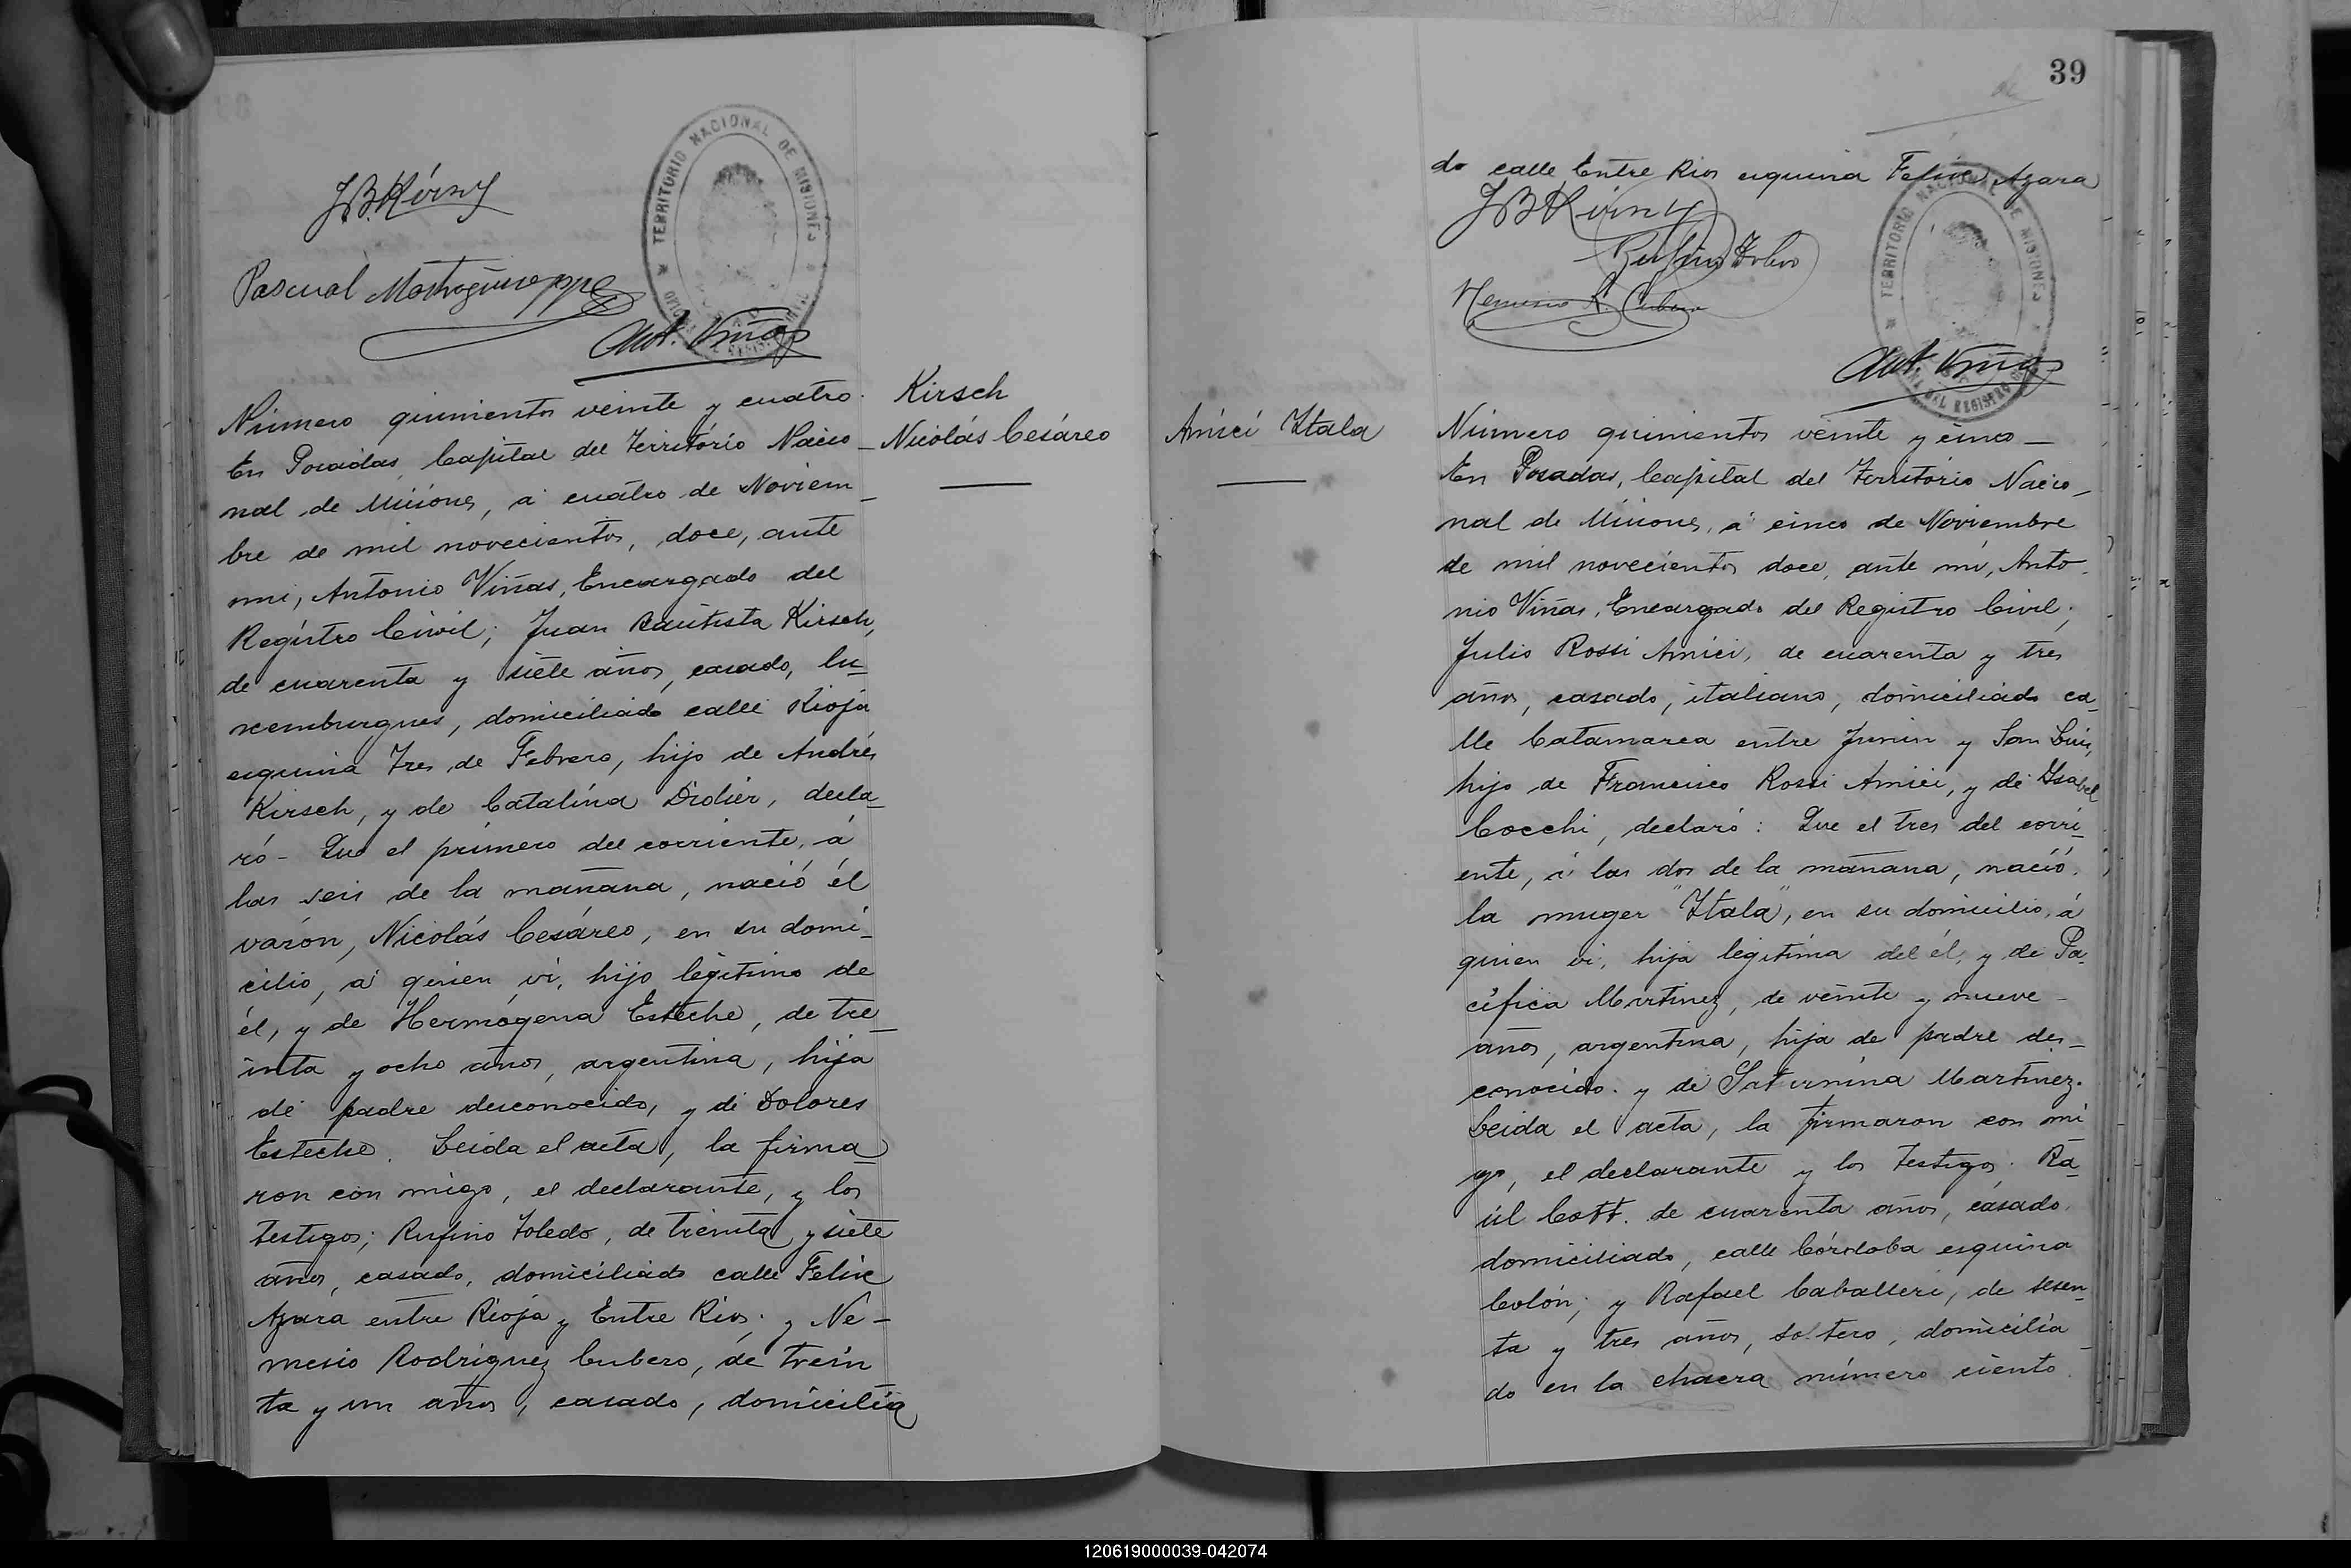 TERRITORIO NACIONAL DE MISIONES
Pascual Mastrogiuseppe
Ant. Viñas
Kirsch
Nicolás Cesáreo
Número quinientos veinte y cuatro.
En Posadas, Capital del Territorio Nacio_
nal de Misiones, á cuatro de Noviem_
bre de mil novecientos, doce, ante
mi, Antonio Viñas, Encargado del
Registro Civil; Juan Bautista Kirsch,
de cuarenta y siete años, casado, lu_
xemburgues, domiciliado calle Rioja
esquina Tres de Febrero, hijo de Andrés
Kirsch, y de Catalina Didier, decla_
ró - Que el primero del corriente, á
las seis de la mañana, nació él
varón, Nicolás Cesáreo, en su domi_
cilio, á quien vi, hijo legitimo de
él, y de Hermógena Esteche, de tre_
inta y ocho años, argentina, hija
de padre desconocido, y de Dolores
Esteche. Leida el acta, la firma_
ron con migo, el declarante, y los
testigos; Rufino Toledo, de treinta y siete
años, casado, domiciliado calle Felix
Azara entre Rioja y Entre Rios; y Ne_
mesio Rodriguez Cubero, de trein
ta y un años, casado, domicilia
39
do calle Entre Rios esquina Felix Azara
Rufino Toledo
Nemesio R. Cubero
TERRITORIO NACIONAL DE MISIONES
DEL REGISTRO
Ant. Viñas
Amici Itala
Número quinientos veinte y cinco_
En Posadas, Capital del Territorio Nacio_
nal de Misiones, á cinco de Noviembre
de mil novecientos doce, ante mi, Anto_
nio Viñas, Encargado del Registro Civil;
Julio Rossi Amici, de cuarenta y tres
años, casado, italiano, domiciliado ca_
lle Catamarca entre Junin y San Luis,
hijo de Francisco Rossi Amici, y de Isabel
Cocchi, declaró: Que el tres del corri_
ente, á las dos de la mañana, nació
la muger "Itala", en su domicilio, á
quien vi, hija legitima del él, y de Pa_
cifica Martinez, de veinte y nueve_
años, argentina, hija de padre des_
conocido. y de Saturnina Martinez.
Leida el acta, la firmaron con mi
go, el declarante y los testigos. Ra_
úl Cott. de cuarenta años, casado,
domiciliado, calle Córdoba esquina
Colón; y Rafael Caballeri, de sesen_
ta y tres años, soltero, domicilia_
do en la chacra número ciento
120619000039-042074